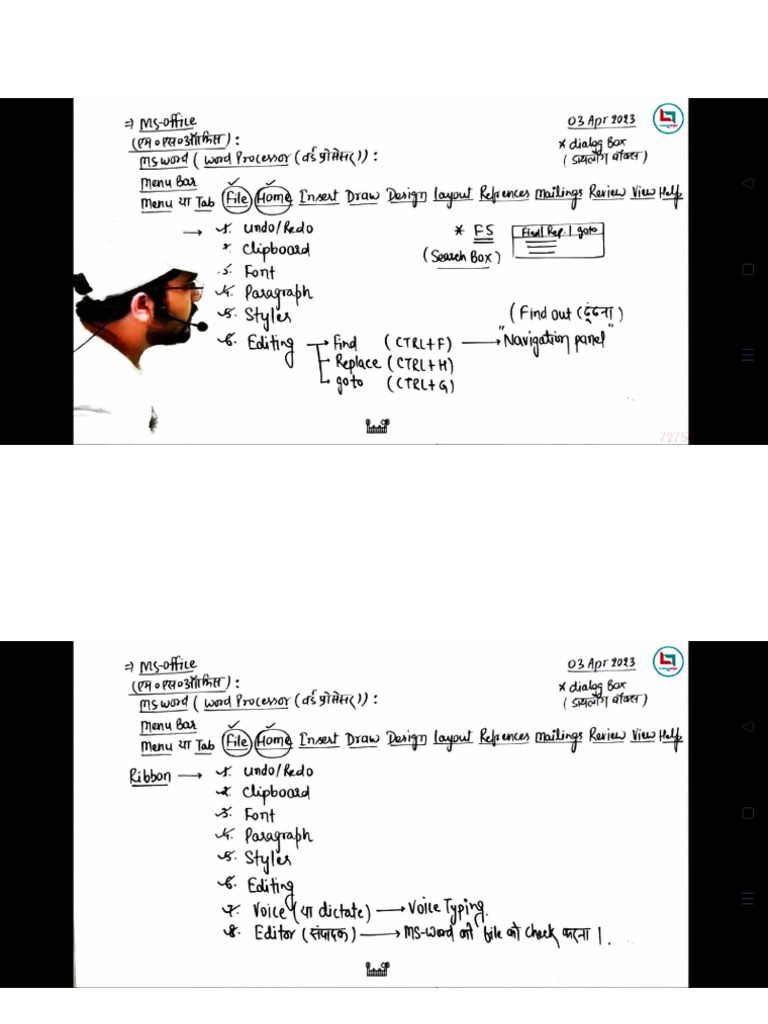 ⇒ MS-office
03 Apr 2023
(एम०एस०ऑफिस) :
* dialog Box
(डायलॉग बॉक्स)
MS word ( word Processor (वर्ड प्रोसेसर)) :
Menu Bar
Menu या Tab File Home Insert Draw Design layout Refrences Mailings Review View Help
→ 1. undo/Redo
2. Clipboard
3. Font
4. Paragraph
5. Styles
6. Editing → Find (CTRL+F) → "Navigation panel"
Replace (CTRL+H)
goto (CTRL+G)
* F5
(Search Box)
Find | Rep. | goto
(Find out (ढूंढना)
7275
⇒ MS-office
03 Apr 2023
(एम०एस०ऑफिस) :
* dialog Box
(डायलॉग बॉक्स)
MS word ( word Processor (वर्ड प्रोसेसर)) :
Menu Bar
Menu या Tab File Home Insert Draw Design layout Refrences Mailings Review View Help
Ribbon → 1. undo/Redo
2. Clipboard
3. Font
4. Paragraph
5. Styles
6. Editing
7. Voice (या dictate) → Voice Typing.
8. Editor (संपादक) → MS-word की file को check करना।.